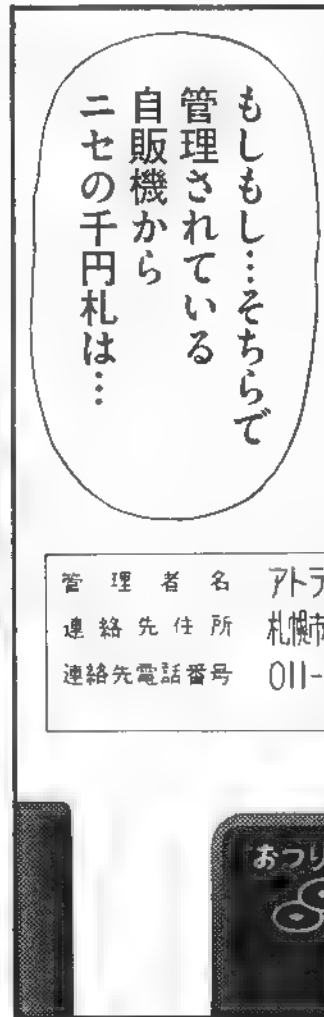 もしもし…そちらで
管理されている
自販機から
ニセの千円札は…
管理者名 アトラ
連絡先住所 札幌市
連絡先電話番号 011-
おつり